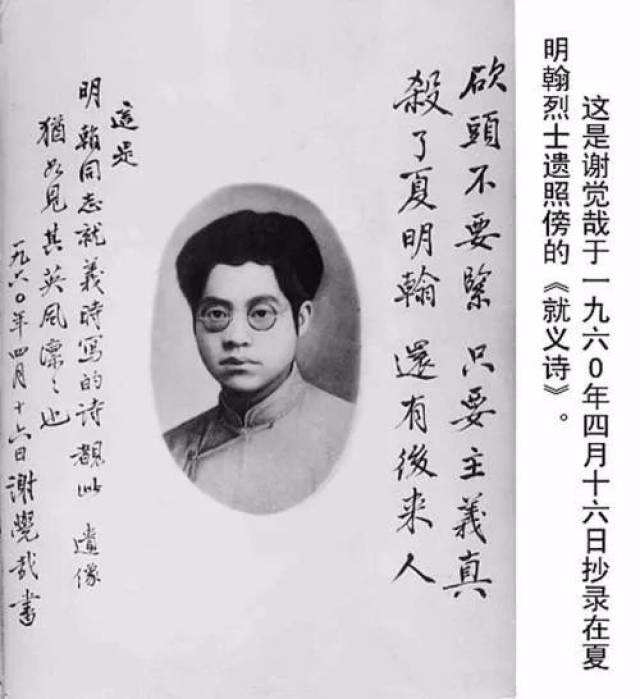 这是谢觉哉于一九六0年四月十六日抄录在夏
明翰烈士遗照傍的《就义诗》。
砍頭不要緊 只要主義真
殺了夏明翰 還有後来人
這是
明翰同志就義時寫的诗 覩此 遺像
猶如見其英風凛〻也
一九六〇年四月十六日谢覺哉書